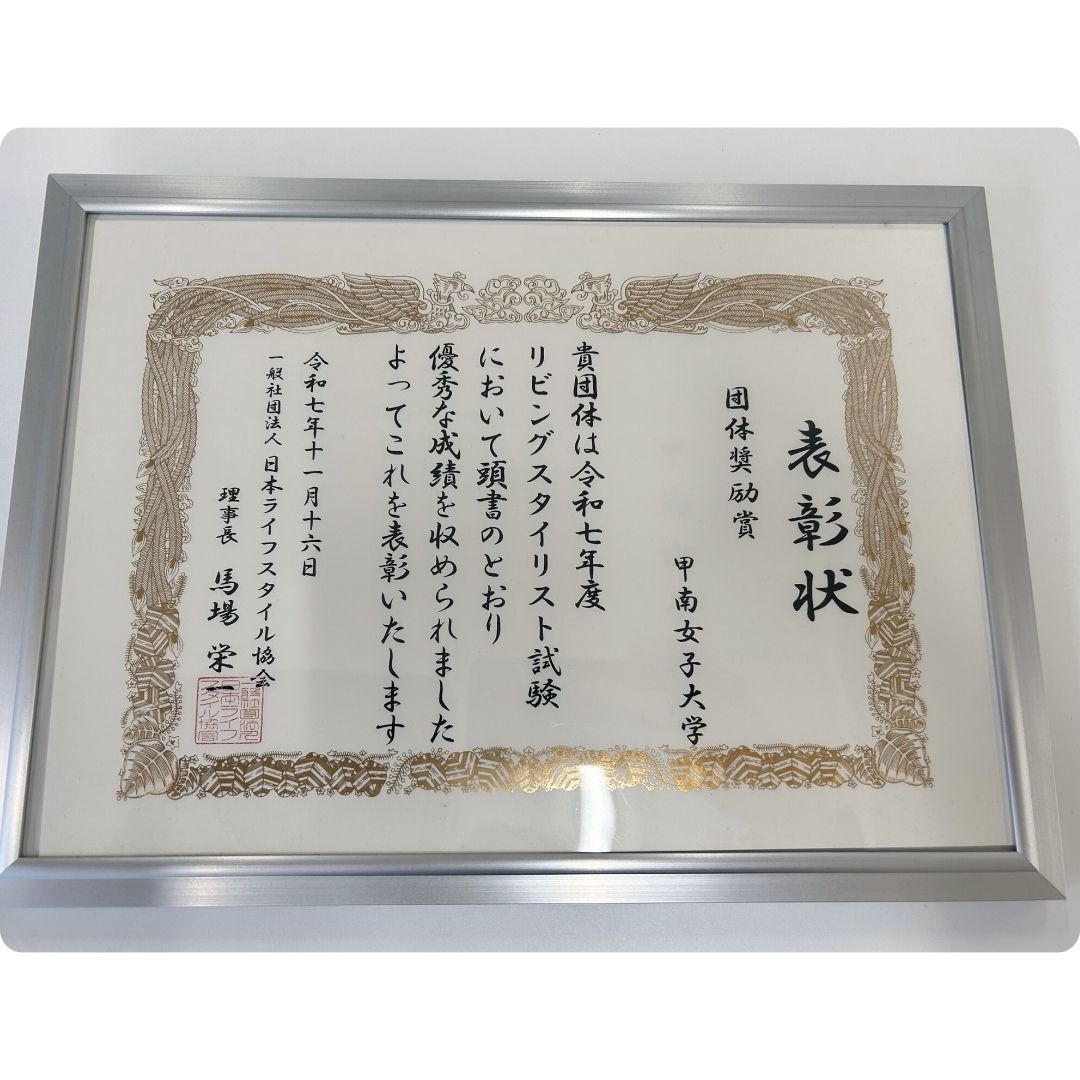 表彰状
団体奨励賞
甲南女子大学
貴団体は令和七年度
リビングスタイリスト試験
において頭書のとおり
優秀な成績を収められました
よってこれを表彰いたします
令和七年十一月十六日
一般社団法人 日本ライフスタイル協会
理事長 馬場 栄一